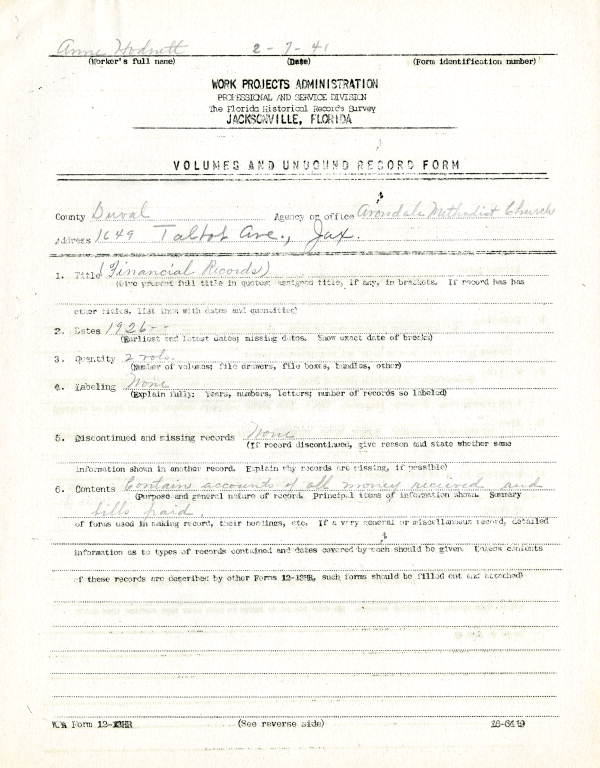 Anne Hodnett 2-7-41
(Worker's full name) (Date) (Form identification number)
WORK PROJECTS ADMINISTRATION
PROFESSIONAL AND SERVICE DIVISION
The Florida Historical Records Survey
JACKSONVILLE, FLORIDA
VOLUMES AND UNBOUND RECORD FORM
County Duval Agency or office Avondale Methodist Church
Address 1649 Talbot Ave., Jax.
1. Title (Financial Records)
(Give present full title in quotes; assigned title, if any, in brackets. If record has has
other titles, list them with dates and quantities)
2. Dates 1926--
(Earliest and latest dates; missing dates. Show exact date of breaks)
3. Quantity 2 vols.
(Number of volumes; file drawers, file boxes, bundles, other)
4. Labeling None
(Explain fully: Years, numbers, letters; number of records so labeled)
5. Discontinued and missing records None
(If record discontinued, give reason and state whether same
information shown in another record. Explain why records are missing, if possible)
6. Contents Contain accounts of all money recieved and
(Purpose and general nature of record. Principal items of information shown. Summary
bills paid.
of forms used in making record, their headings, etc. If a very general or miscellaneous record, detailed
information as to types of records contained and dates covered by each should be given. Unless contents
of these records are described by other Forms 12-13HR, such forms should be filled out and attached)
WPA Form 12-13HR (See reverse side) 16-6419